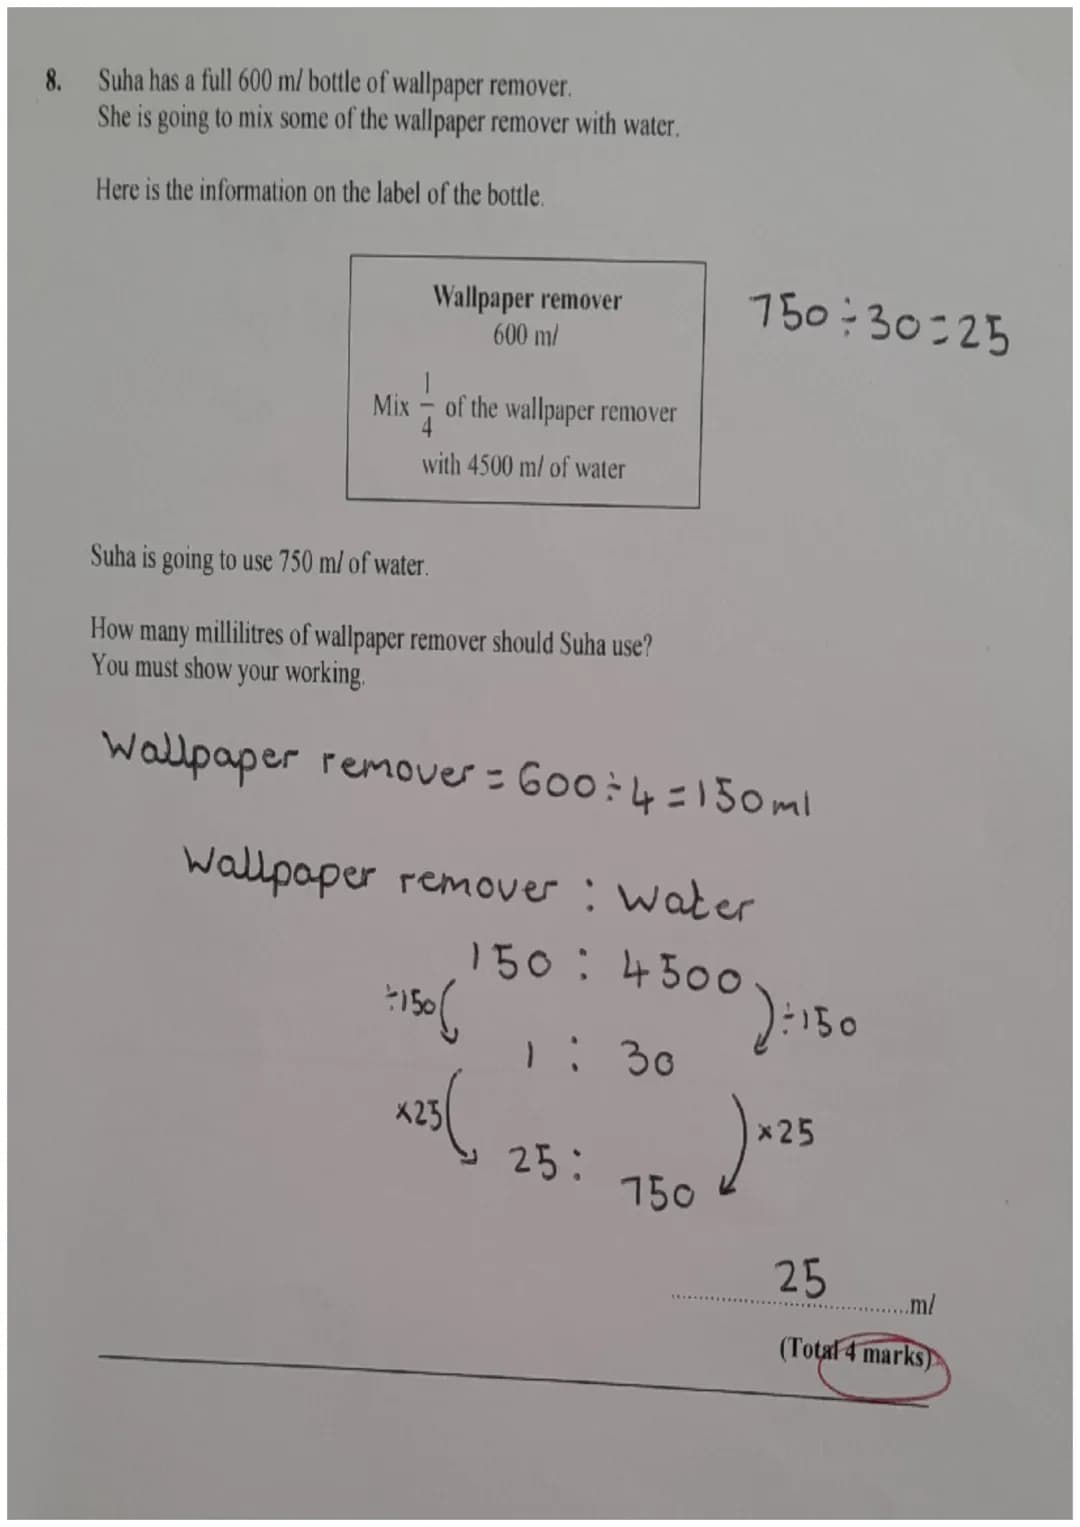 8. Suha has a full 600 ml bottle of wallpaper remover.
She is going to mix some of the wallpaper remover with water.
Here is the information on the label of the bottle.
Wallpaper remover
600 ml
Mix 1/4 of the wallpaper remover
with 4500 ml of water
750÷30=25
Suha is going to use 750 ml of water.
How many millilitres of wallpaper remover should Suha use?
You must show your working.
Wallpaper remover = 600÷4=150ml
Wallpaper remover : Water
150 : 4500
÷150 ÷150
1 : 30
×25 ×25
25 : 750
25 ml
(Total 4 marks)